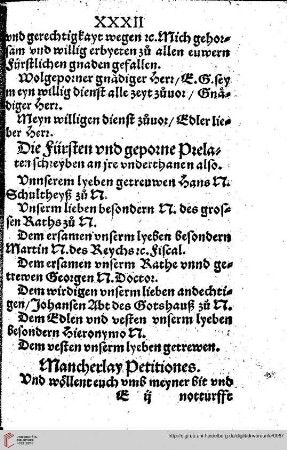 XXXII
vnd gerechtigkayt wegen ⁊c. Mich gehor-
sam vnd willig erbyeten zů allen euwern
Fürstlichen gnaden gefallen.
Wolgeporner gnädiger Herr/ E. G. sey
m eyn willig dienst alle zeyt zůuor/ Gnä-
diger Herr.
Meyn willigen dienst zůuor/ Edler lie-
ber Herr.
Die Fürsten vnd geporne Prela-
ten schreyben an jre vnderthanen also.
Vnnserem lyeben getreuwen Hans N.
Schultheyß zů N.
Vnserm lieben besondern N. des gros-
sen Raths zů N.
Dem ersamen vnserm lyeben besondern
Martin N. des Reychs ⁊c. Fiscal.
Dem ersamen vnserm Rathe vnnd ge-
trewen Georgen N. Doctor.
Dem wirdigen vnserm lieben andechti-
gen/ Johansen Abt des Gotshauß zů N.
Dem Edlen vnd vesten vnserm lyeben
besondern Hieronymo N.
Dem vesten vnserm lyeben getrewen.
Mancherlay Petitiones.
Vnd wöllent euch vmb meyner bit vnd
E ij notturfft